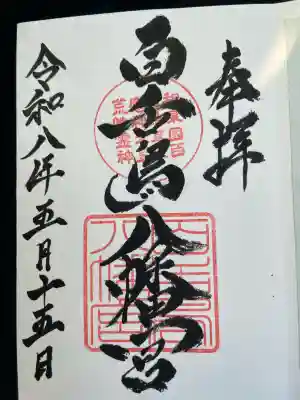 奉拝
百舌鳥八幡宮
令和八年五月十五日